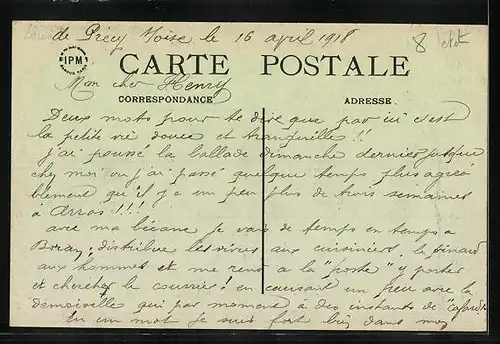 de Précy Moise le 16 april 1918
8
IPM
CARTE POSTALE
Mon cher Henry
CORRESPONDANCE
ADRESSE
Deux mots pour te dire que par ici c'est
la petite vie douce et tranquille !!
j'ai poussé la ballade dimanche dernier jusque
chez moi ou j'ai passé quelque temps plus agréa
blement qu'il y a un peu plus de trois semaines
à Arras !!!
avec ma bécane je vais de temps en temps a
Bray; distribue les vivres aux cuisiniers, le pinard
aux hommes et me rend a la "poste" y porter
et chercher le courrier! en causant un peu avec la
demoiselle qui par moment à des instants de "cafard"!
En un mot je suis fort bien dans mon